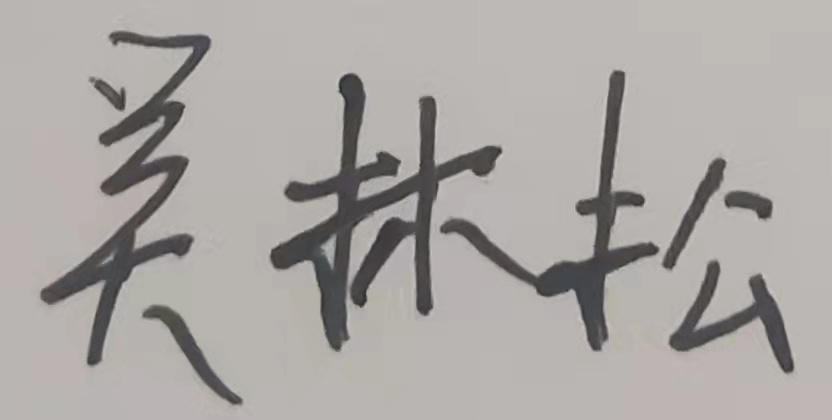 吴林松